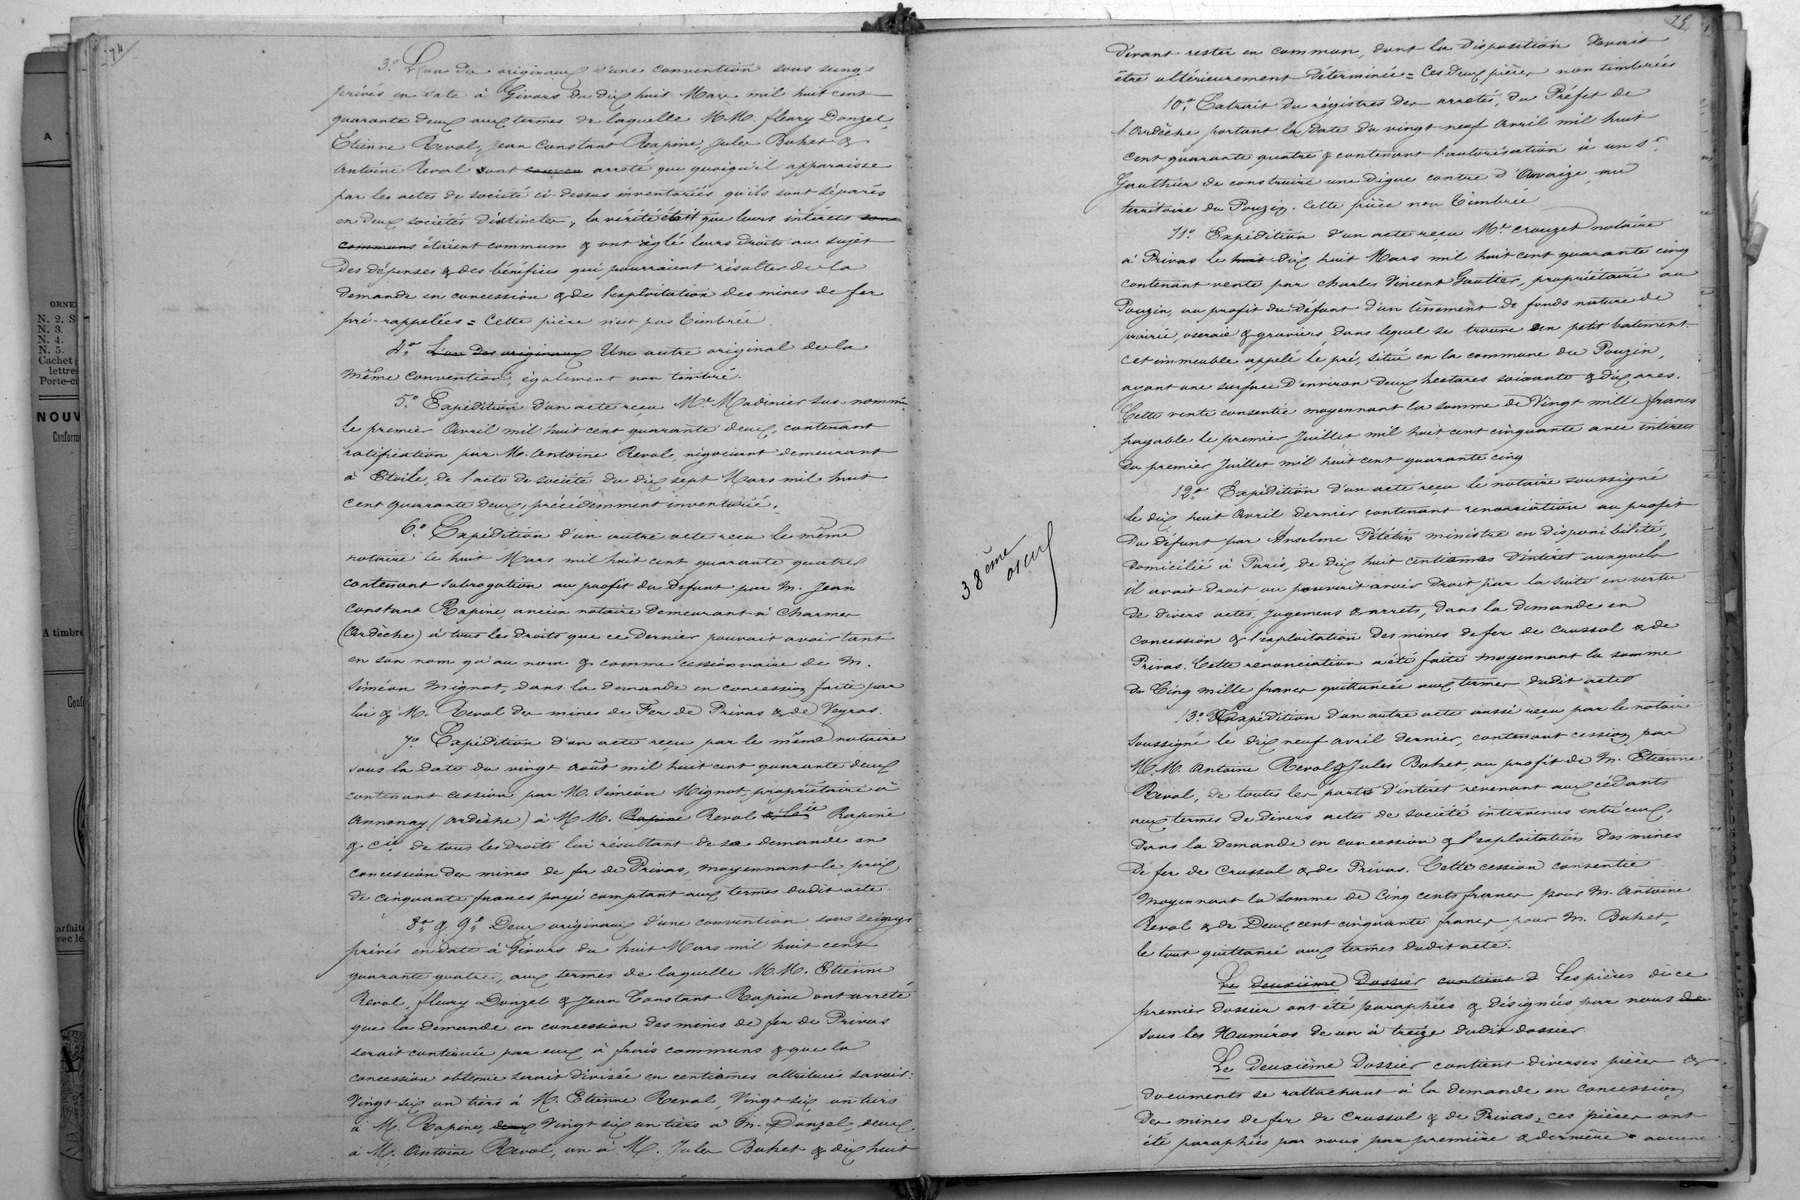 74
3.° L'un des originaux d'une convention sous seings
privés en date à Givors du dix huit Mars mil huit cent
quarante deux aux termes de laquelle M.M. fleury Donzel,
Etienne Reval, Jean Constant Rapine, Jules Buhet &
Antoine Reval ont conven arrêté que quoiqu'il apparaisse
par les actes de société ci-dessus inventoriés qu'ils sont séparés
en deux sociétés distinctes, la vérité était que leurs intérêts sont
communs étaient communs & ont réglé leurs droits au sujet
des dépenses & des bénéfices qui pourraient résulter de la
demande en concession & de l'exploitation des mines de fer
pré-rappelées = Cette pièce n'est pas timbrée.
4.° L'un des originaux Une autre original de la
même convention, également non timbré.
5.° Expédition d'un acte reçu Me Madinier sus nommé
le premier Avril mil huit cent quarante deux, contenant
ratification par M. Antoine Reval, négociant demeurant
à Etoile, de l'acte de société du dix sept Mars mil huit
cent quarante deux, précédemment inventorié.
6.° Expédition d'un autre acte reçu le même
notaire le huit Mars mil huit cent quarante quatre
contenant subrogation au profit du Defunt par M. Jean
Constant Rapine, ancien notaire demeurant à Charmes
(Ardèche) à tous les droits que ce dernier pouvait avoir tant
en son nom qu'au nom & comme cessionnaire de M.
Siméon Mignot, dans la demande en concession faite par
lui & M. Reval des mines de Fer de Privas & de Veyras.
7.° Expédition d'un acte reçu par le même notaire
sous la date du vingt août mil huit cent quarante deux
contenant cession par M. Siméon Mignot, propriétaire à
Annonay (Ardèche) à M.M. Rapine Reval & Cie Rapine
& Cie, de tous les droits lui résultant de sa demande en
concession des mines de fer de Privas, moyennant le prix
de cinquante francs payé comptant aux termes dudit acte.
8.° & 9.° Deux originaux d'une convention sous seings
privés en date à Givors du huit Mars mil huit cent
quarante quatre, aux termes de laquelle M.M. Etienne
Reval, fleury Donzel & Jean Constant Rapine ont arrêté
que la demande en concession des mines de fer de Privas
serait continuée par eux à frais communs & que la
concession obtenue serait divisée en centièmes attribués savoir:
Vingt six un tiers à M. Etienne Reval, Vingt six un tiers
à M. Rapine, deux Vingt six un tiers à M. Donzel, deux
à M. Antoine Reval, un à M. Jules Buhet & dix huit
75
devant rester en commun, dont la disposition devait
être ultérieurement déterminée = Ces deux pièces non timbrées
10.° Extrait du régistres des arrêtés, du Préfet de
l'Ardèche portant la date du vingt neuf Avril mil huit
cent quarante quatre & contenant l'autorisation à un Sr.
Gauthier de construire une digue contre d'Ouvèze, au
territoire du Pouzin. Cette pièce non timbrée
11.° Expédition d'un acte reçu Me Crouzet notaire
à Privas le huit dix huit Mars mil huit cent quarante cinq
contenant vente par Charles Vincent Gautier, propriétaire au
Pouzin, au profit du défunt d'un tènement de fonds nature de
prairie, oseraie & graviers, dans lequel se trouve un petit batiment.
cet immeuble appelé le pré, situé en la commune du Pouzin,
ayant une surface d'environ deux hectares soixante & dix ares.
Cette vente consentie moyennant la somme de Vingt mille francs
payable le premier Juillet mil huit cent cinquante avec intérêts
du premier Juillet mil huit cent quarante cinq
12.° Expédition d'un acte reçu le notaire soussigné
le dix huit Avril dernier contenant renonciation au profit
du défunt par Anselme Pététin ministre en disponibilité,
domicilié à Paris, de dix huit centièmes d'intérêt auxquels
il avait droit ou pouvait avoir droit par la suite en vertu
de divers actes, jugemens & arrêts, dans la demande en
concession & l'exploitation des mines de fer de Crussol & de
Privas. Cette renonciation a été faite moyennant la somme
de Cinq mille francs quittancée aux termes dudit acte
13.° Expédition d'un autre acte aussi reçu par le notaire
soussigné le dix neuf avril dernier, contenant cession par
M.M. Antoine Reval & Jules Buhet, au profit de M. Etienne
Reval, de toutes les parts d'intérêt revenant aux cédants
aux termes de divers actes de société intervenus entr'eux,
dans la demande en concession & l'exploitation des mines
de fer de Crussol & de Privas. Cette cession consentie
moyennant la somme de Cinq cents francs pour M. Antoine
Reval & de Deux cent cinquante francs pour M. Buhet,
le tout quittancé aux termes dudit acte.
Le deuxième Dossier contient d Les pièces de ce
premier dossier ont été paraphées & désignées par nous de
sous les Numéros de un à treize dudit dossier
Le Deuxième Dossier contient diverses pièces &
documents se rattachant à la demande en concession
des mines de fer de Crussol & de Privas, ces pièces ont
été paraphées par nous par première & dernière = aucune
38ème
A
ORNE
N. 2. S
N. 3.
N. 4.
N. 5.
Cachet
lettre
Porte-c
NOUV
Conform
A timbre
Conf
arfaite
vec le